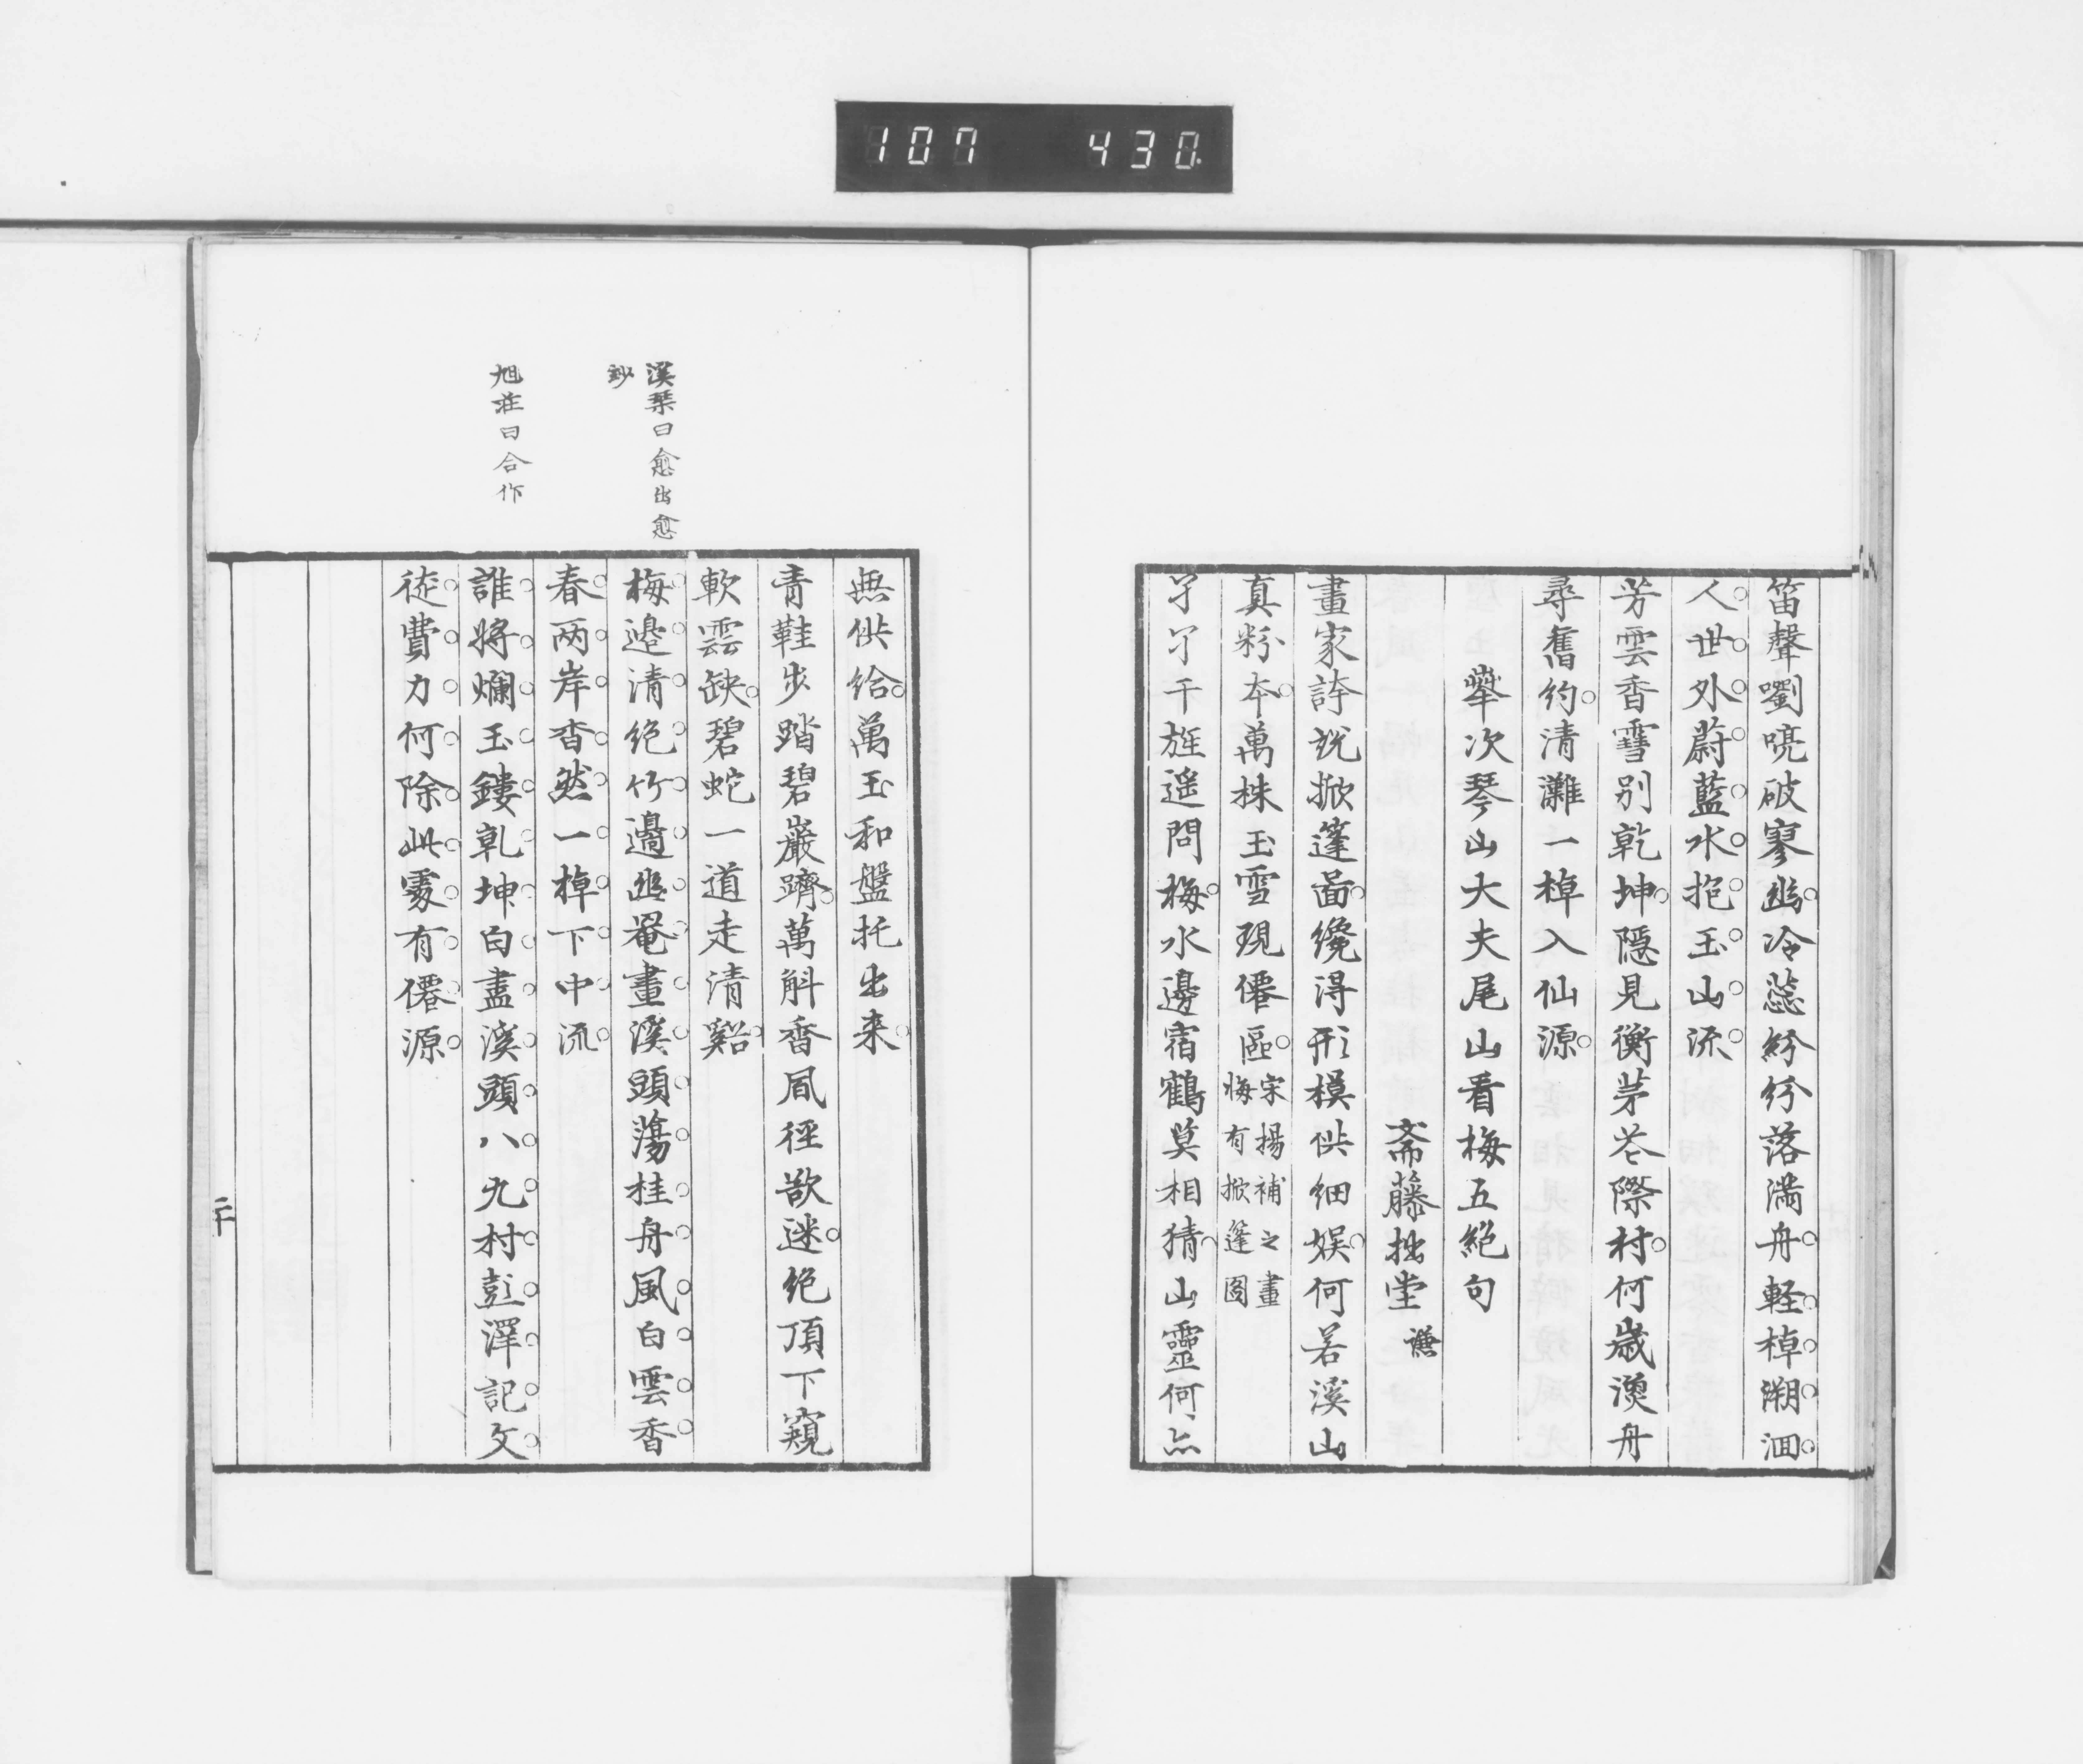 107 430
笛聲嚠喨破寥幽冷蕊紛紛落滿舟軽棹溯洄
人世外蔚藍水抱玉山流
芳雲香雪別乾坤隠見衡茅苍際村何歳漁舟
尋舊約清灘一棹入仙源
攀次琴山大夫尾山看梅五絕句
斎藤拙堂 謙
畫家誇説掀蓬啚纔得形模供细娱何若溪山
真粉本萬株玉雪現僊區 宋揚補之畫梅有掀篷圖
孑孑干旌遥問梅水邊宿鶴莫相猜山靈何亦
無供給萬玉和盤托出来
青鞋步踏碧巖躋萬斛香凮徑欲迷绝頂下窺
軟雲缺碧蛇一道走清谿
溪琴曰愈出愈
妙
梅邊清绝竹邊幽罨畫溪頭蕩桂舟風白雲香
春两岸杳然一棹下中流
旭荘曰合作
誰將爛玉鏤乹坤白盡溪頭八九村彭澤記文
徒費力何除此處有僊源
二十